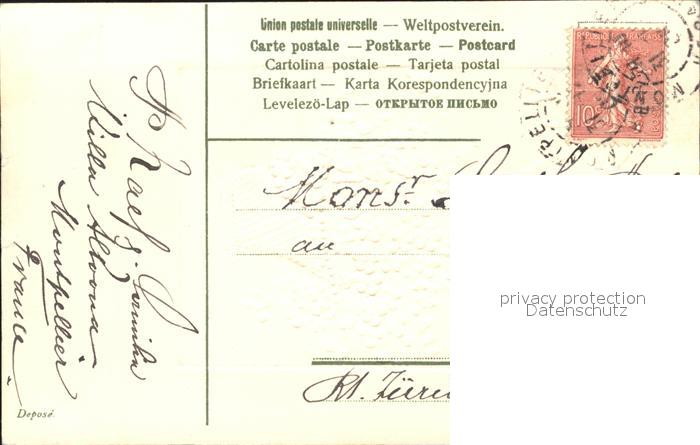 Union postale universelle — Weltpostverein.
Carte postale — Postkarte — Postcard
Cartolina postale — Tarjeta postal
Briefkaart — Karta Korespondencyjna
Levelező-Lap — ОТКРЫТОЕ ПИСЬМО
REPUBLIQUE FRANÇAISE
10c
POSTES
Monsr
au
Kt. Züri
Villa
Montpellier
France
Deposé.
privacy protection
Datenschutz